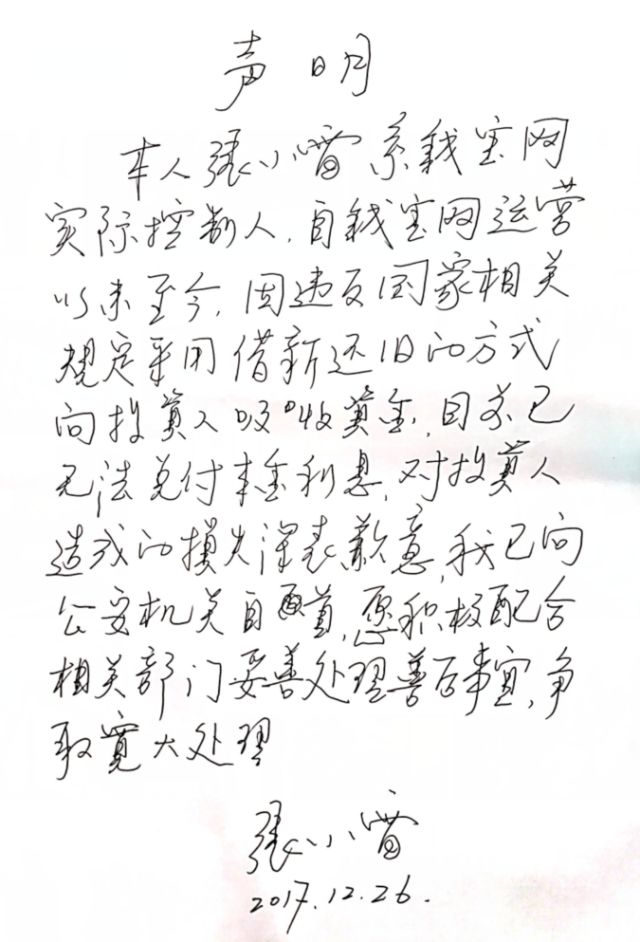 声明
本人張小雷系钱宝网
实际控制人，自钱宝网运营
以来至今，因违反国家相关
规定采用借新还旧的方式
向投资人吸收资金，目前已
无法兑付本金利息，对投资人
造成的损失深表歉意，我已向
公安机关自首，愿积极配合
相关部门妥善处理善后事宜，争
取寬大处理
張小雷
2017.12.26.